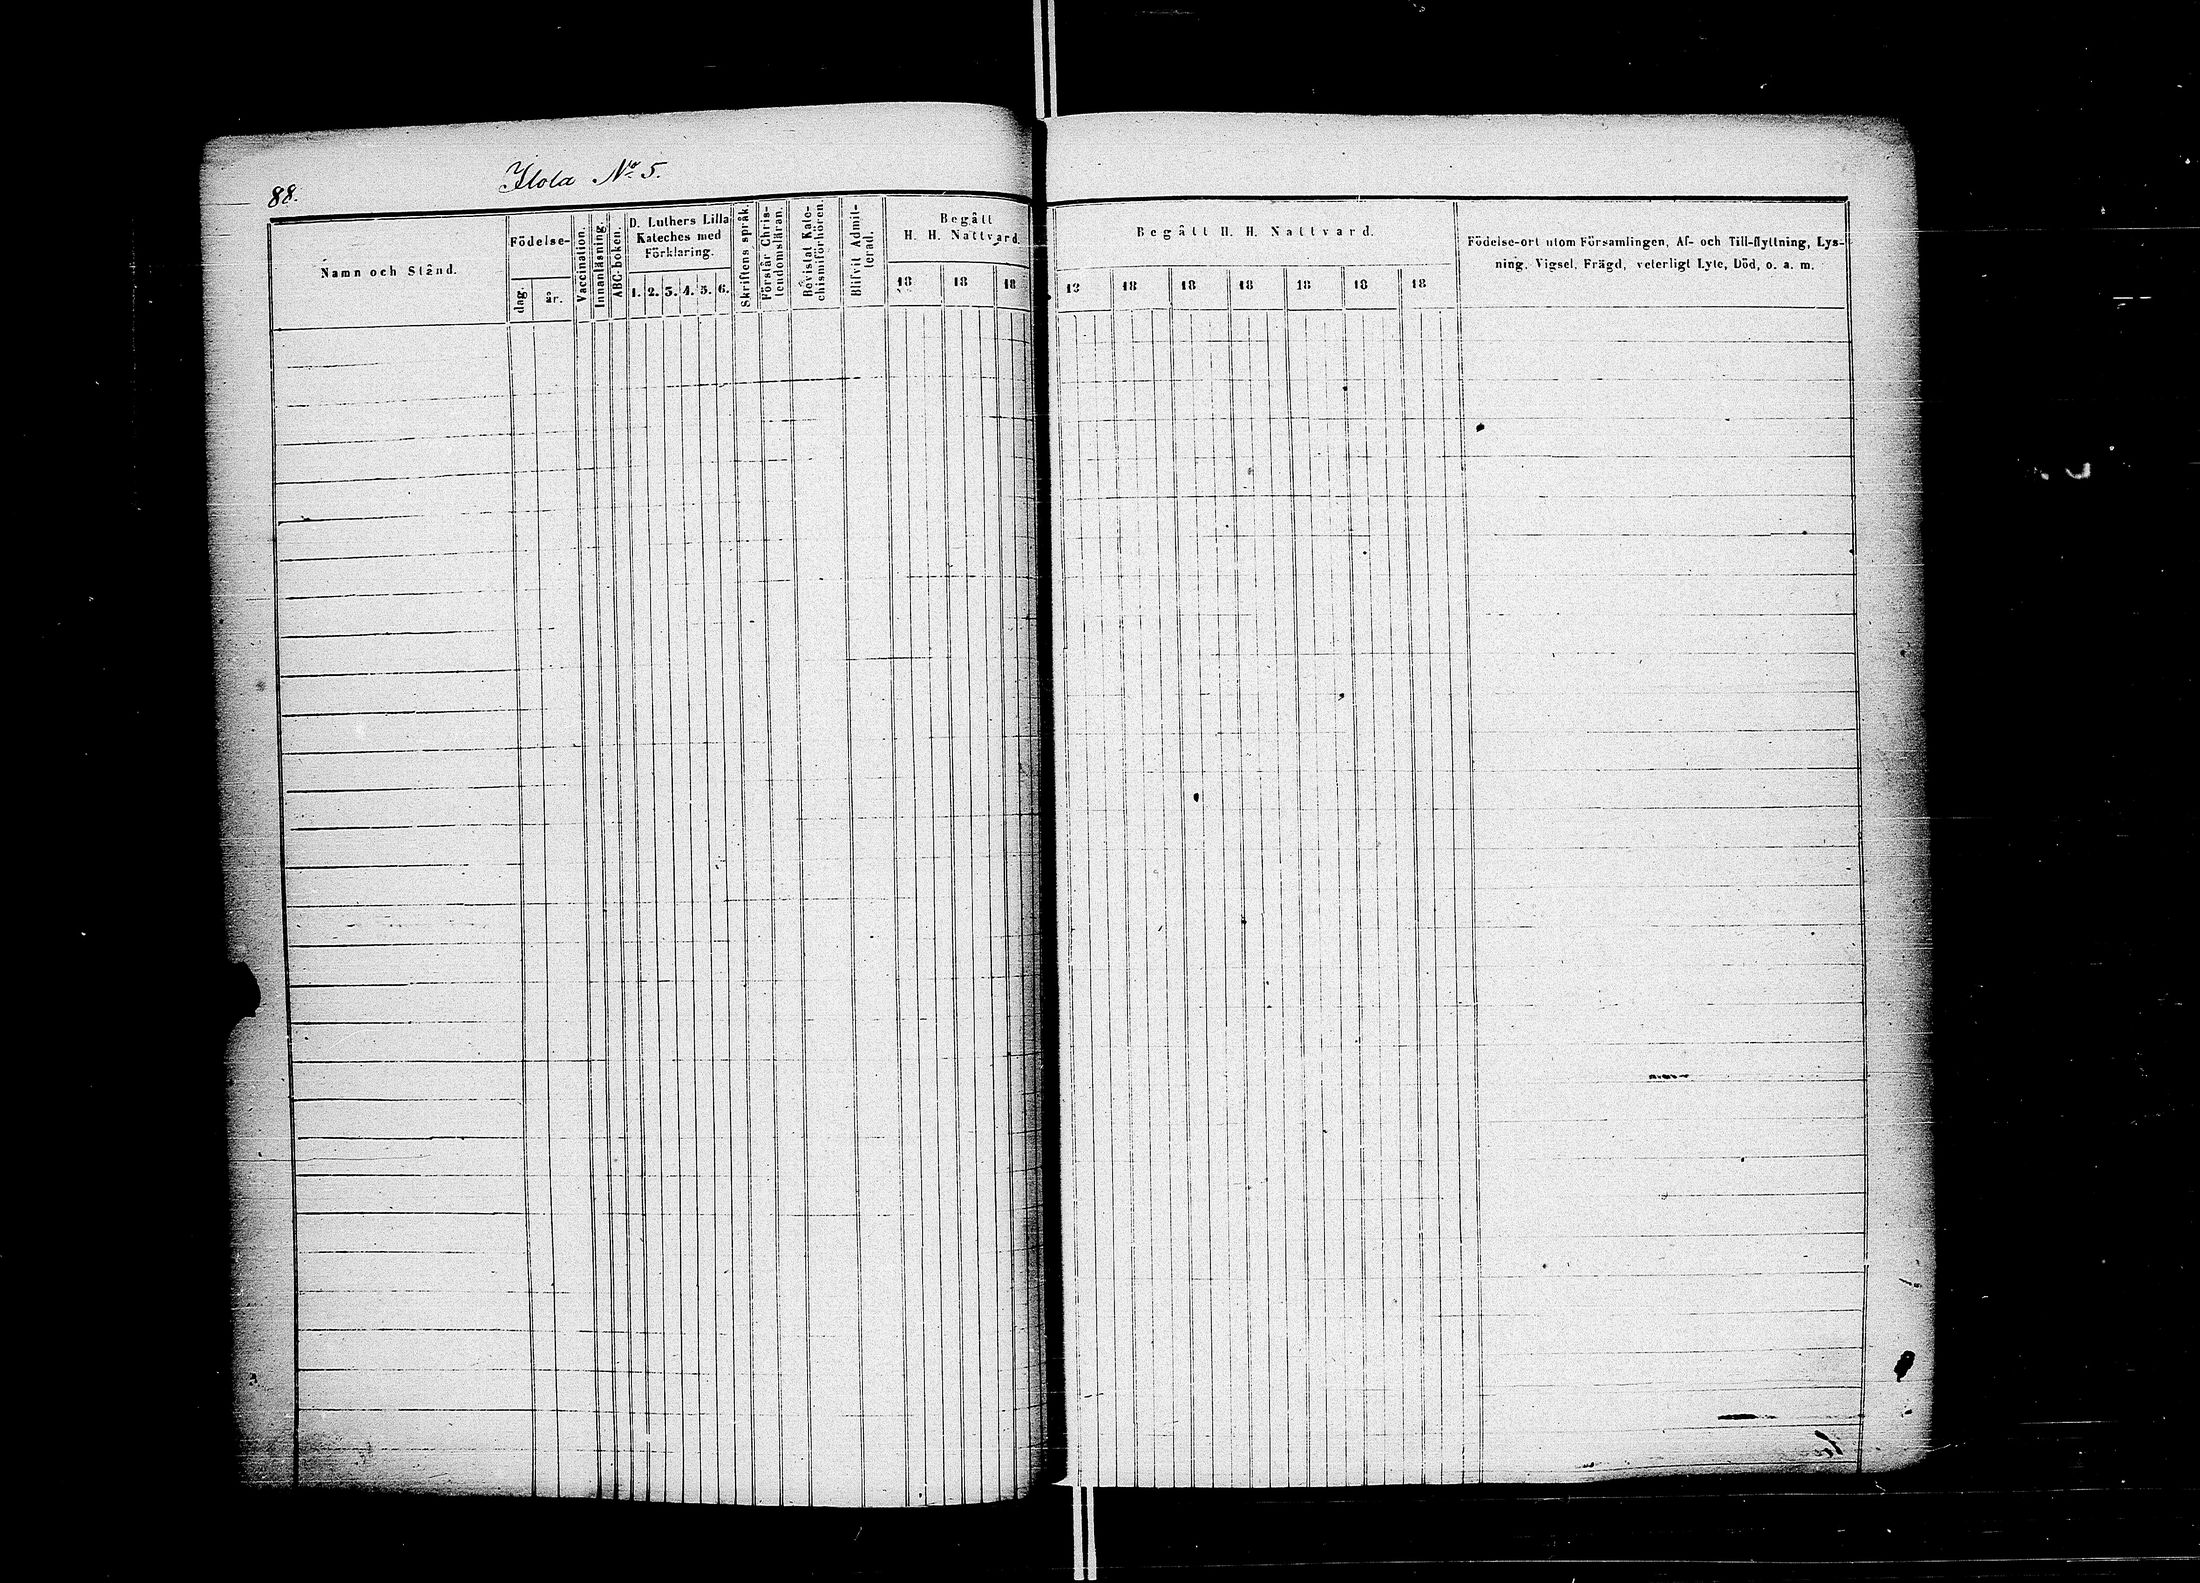 88.
Ilola No 5.
Namn och Stånd.
Födelse-
dag.
år.
Vaccination.
Innanläsning.
ABC-boken.
D. Luthers Lilla
Kateches med
Förklaring.
1. 2. 3. 4. 5. 6.
Skriftens språk.
Förstår Chris-
tendomsläran.
Bevistat Kate-
chismiförhören.
Blifvit Admit-
terad.
Begått
H. H. Nattvard.
18 18 18
Begått H. H. Nattvard.
18 18 18 18 18 18 18
Födelse-ort utom Församlingen, Af- och Till-flyttning, Lys-
ning, Vigsel, Frägd, veterligt Lyte, Död, o. a. m.